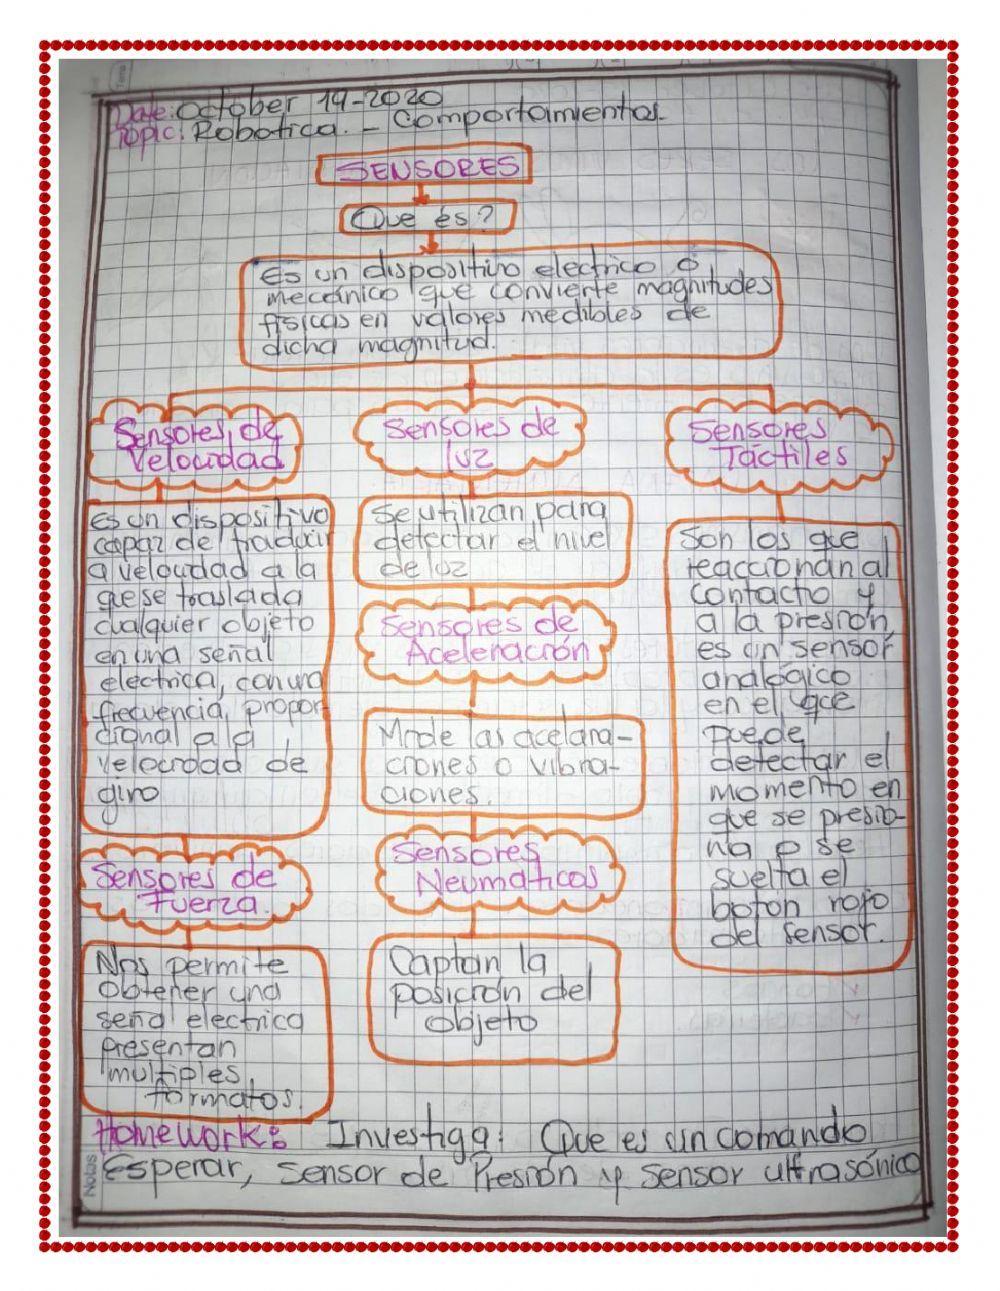 Date: October 19-2020
Topic: Robotica. - Comportamientos.
SENSORES
Que és?
Es un dispositivo electrico o
mecánico que convierte magnitudes
físicas en valores medibles de
dicha magnitud.
Sensores de
Velocidad
Es un dispositivo
capaz de traducir
a velocidad a la
que se traslada
cualquier objeto
en una señal
electrica, con una
frecuencia propor-
cional a la
velocidad de
giro
Sensores de
Fuerza.
Nos permite
Obtener una
señal electrica
Presentan
multiples
formatos.
Sensores de
luz
Se utilizan para
detectar el nivel
de luz
Sensores de
Aceleración
Mide las acelara-
ciones o vibra-
ciones.
Sensores
Neumaticos
Captan la
posición del
objeto
Sensores
Táctiles
Son los que
reaccionan al
contacto y
a la presión,
es un sensor
analógico
en el que
puede
detectar el
momento en
que se presio-
na o se
suelta el
boton rojo
del sensor.
Homework: Investiga: Que es un comando
Esperar, sensor de Presión y sensor ultrasónico
Notas